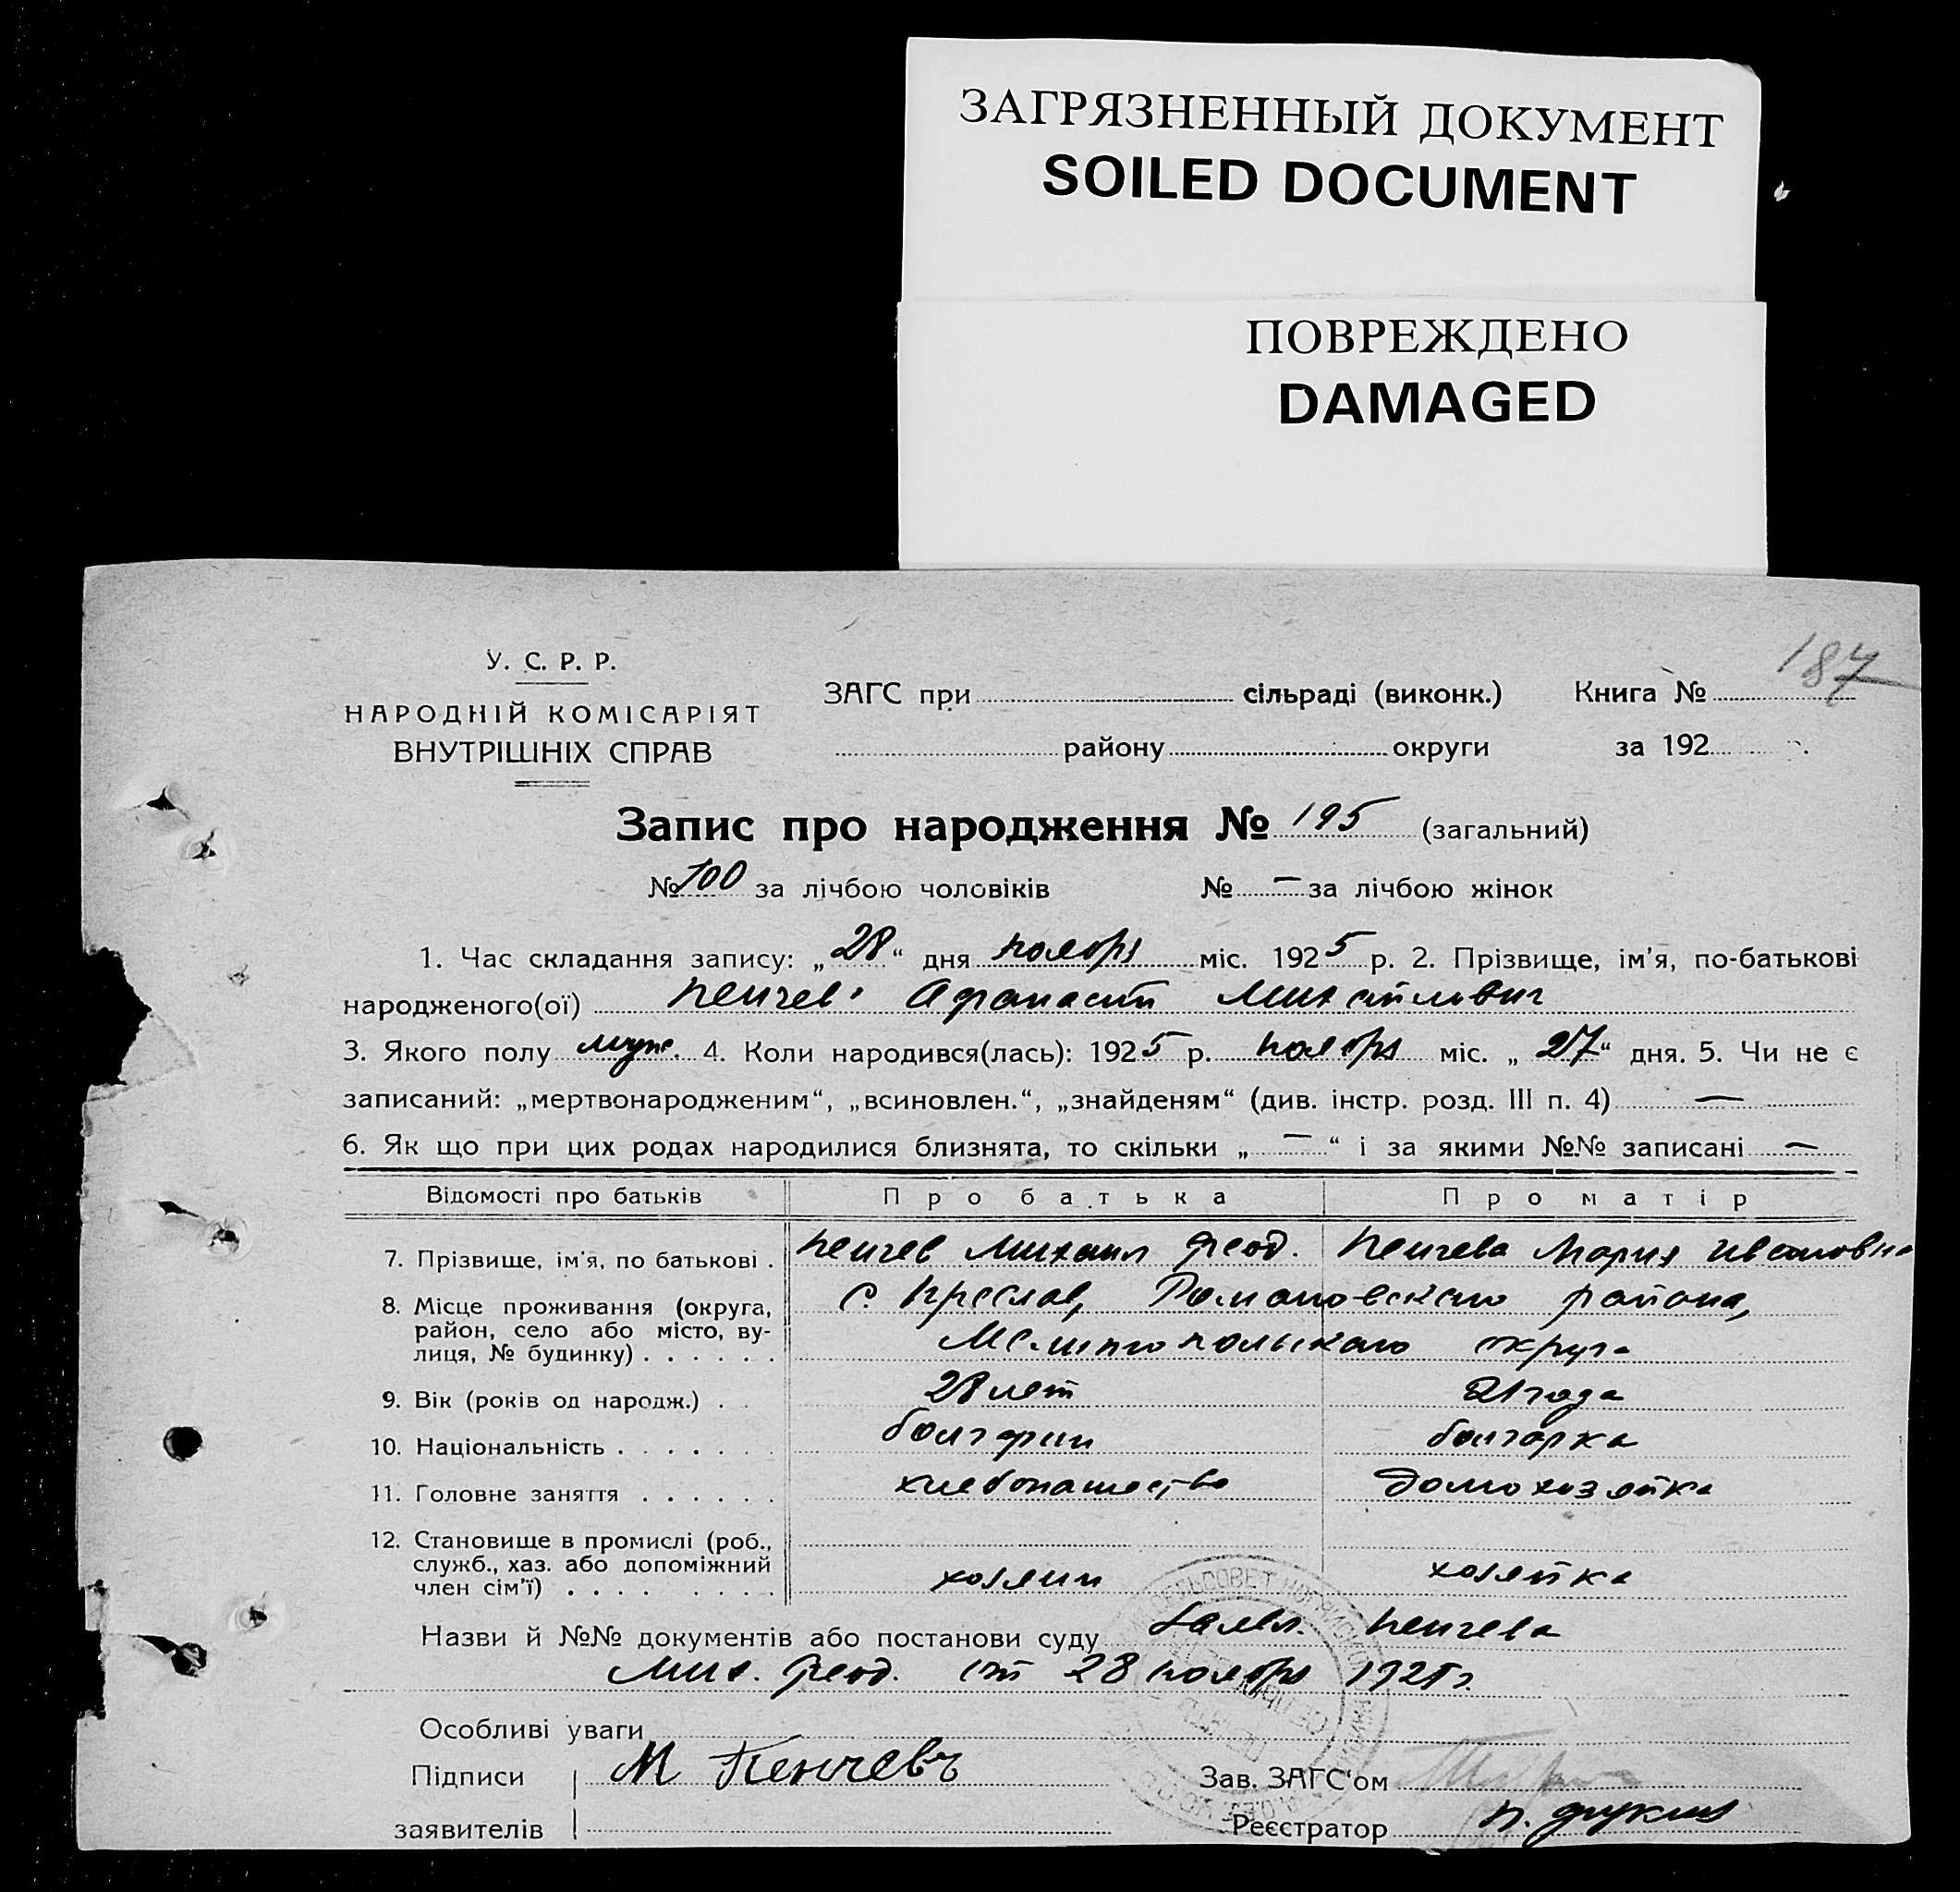 ЗАГРЯЗНЕННЫЙ ДОКУМЕНТ
SOILED DOCUMENT
ПОВРЕЖДЕНО
DAMAGED
187
У. С. Р. Р.
НАРОДНІЙ КОМІСАРІЯТ
ВНУТРІШНІХ СПРАВ
ЗАГС при сільраді (виконк.) Книга №
району округи за 192
Запис про народження № 195 (загальний)
№ 100 за лічбою чоловіків № — за лічбою жінок
1. Час складання запису: „28“ дня ноября міс. 1925 р. 2. Прізвище, ім'я, по-батькові
народженого(ої) Пенчев Афанасий Михайлович
3. Якого полу муж. 4. Коли народився(лась): 1925 р. ноября міс. „27“ дня. 5. Чи не є
записаний: „мертвонародженим“, „всиновлен.“, „знайденям“ (див. інстр. розд. III п. 4) —
6. Як що при цих родах народилися близнята, то скільки „ — “ і за якими №№ записані —
Відомості про батьків Про батька Про матір
7. Прізвище, ім'я, по батькові . Пенчев Михаил Феод. Пенчева Мария Ивановна
8. Місце проживання (округа, район, село або місто, вулиця, № будинку) . . . . . . с. Преслав, Романовского района,
Мелитопольского округа
9. Вік (років од народж.) . . 28 лет 21 года
10. Національність . . . . . . болгарин болгарка
11. Головне заняття . . . . . . хлебопашество домохозяйка
12. Становище в промислі (роб., служб., хаз. або допоміжний член сім'ї) . . . . . . . . хозяин хозяйка
Назви й №№ документів або постанови суду Заявл. Пенчева
Мих. Феод. от 28 ноября 1925 г.
Особливі уваги
Підписи М Пенчевъ Зав. ЗАГС‘ом
заявителів Реєстратор П.